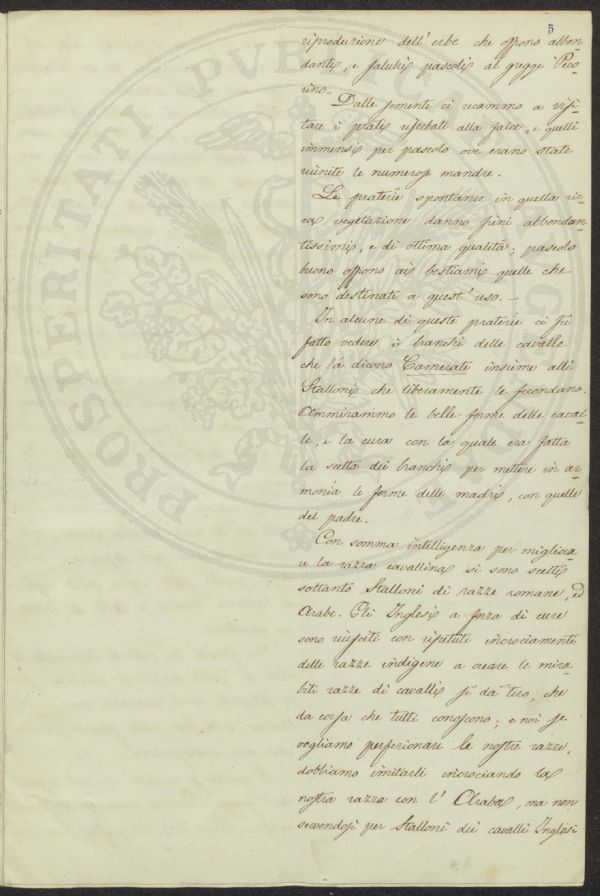 5
riproduzione dell'erbe che offrono abbon-
danti, e salubri pascoli al gregge Peco-
rino.
Dalle sementi ci recammo a visi-
tare i prati riserbati alla falce, e quelli
immensi per pascolo ove erano state
riunite le numerose mandre.
Le praterie spontanee in quella ric-
ca vegetazione danno fieni abbondan-
tissimi, e di ottima qualità; pascolo
buono offrono ai bestiami quelle che
sono destinate a quest'uso. _
In alcune di queste praterie ci fu
fatto vedere i branchi delle cavalle
che là dicono Camerate insieme alli
Stalloni che liberamente le fecondano.
Ammirammo le belle forme delle caval-
le, e la cura con la quale era fatta
la scelta dei branchi per mettere in ar-
monia le forme delle madri, con quelle
del padre.
Con somma intelligenza per migliora-
re la razza cavallina si sono scelti
soltanto Stalloni di razze romane, ed
Arabe. Gli Inglesi a forza di cure
sono riusciti con ripetuti incrociamenti
delle razze indigene a creare le mira-
bili razze di cavalli sì da tiro, che
da corsa che tutti conoscono; e noi se
vogliamo perfezionare le nostre razze,
dobbiamo imitarli incrociando la
nostra razza con l'Araba, ma non
servendosi per Stalloni dei cavalli Inglesi
PROSPERITATI PVBLICAE